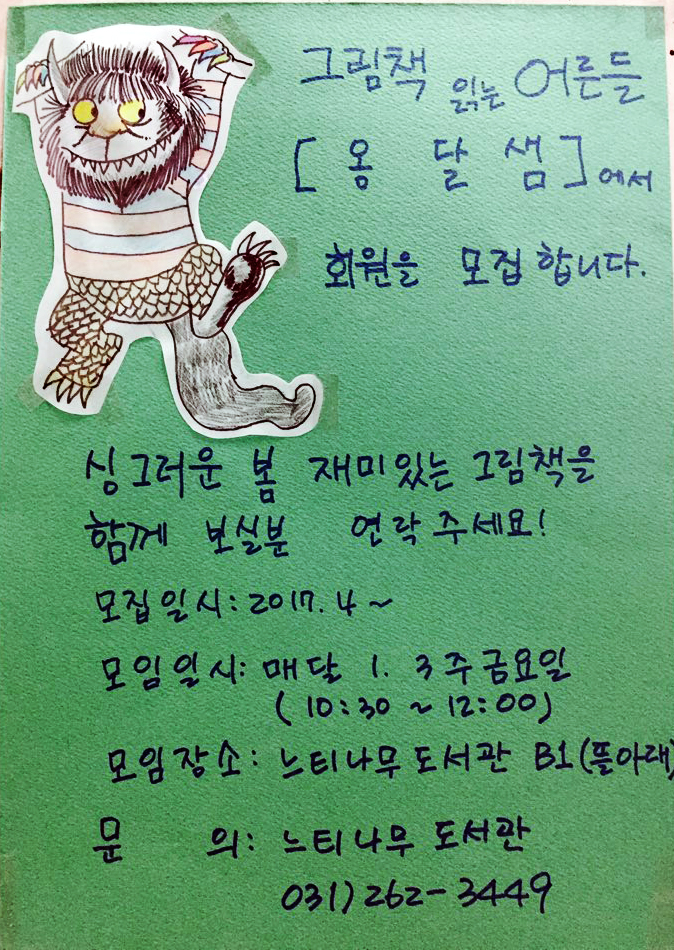 그림책 읽는 어른들
[옹 달 샘]에서
회원을 모집합니다.
싱그러운 봄 재미있는 그림책을
함께 보실분 연락주세요!
모집일시: 2017. 4 ~
모임일시: 매달 1. 3주금요일
(10:30 ~ 12:00)
모임장소: 느티나무도서관 B1(뜰아래)
문 의: 느티나무 도서관
031) 262-3449